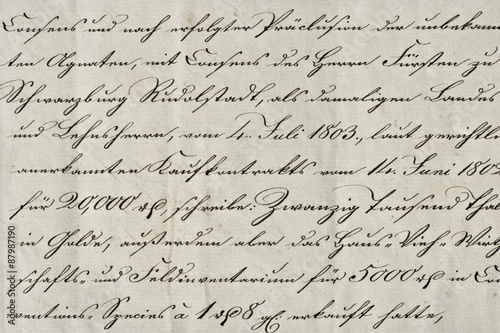 Consens und nach erfolgter Präclusion der unbekann
ten Agnaten, mit Consens des Herrn Fürsten zu
Schwarzburg Rudolstadt, als damaligen Landes
und Lehnsherrn, vom 4. Juli 1803., laut gerichtli
anerkannten Kaufkontrakts vom 14. Juni 1802
für 20,000 rß, schreibe: Zwanzig Tausend Thal
in Golde, außerdem aber das Haus- Vieh- Wirth
schafts- und Feldinventarium für 5000 rß in Con
ventions- Species à 1 rß 8 gr. erkauft hatte,